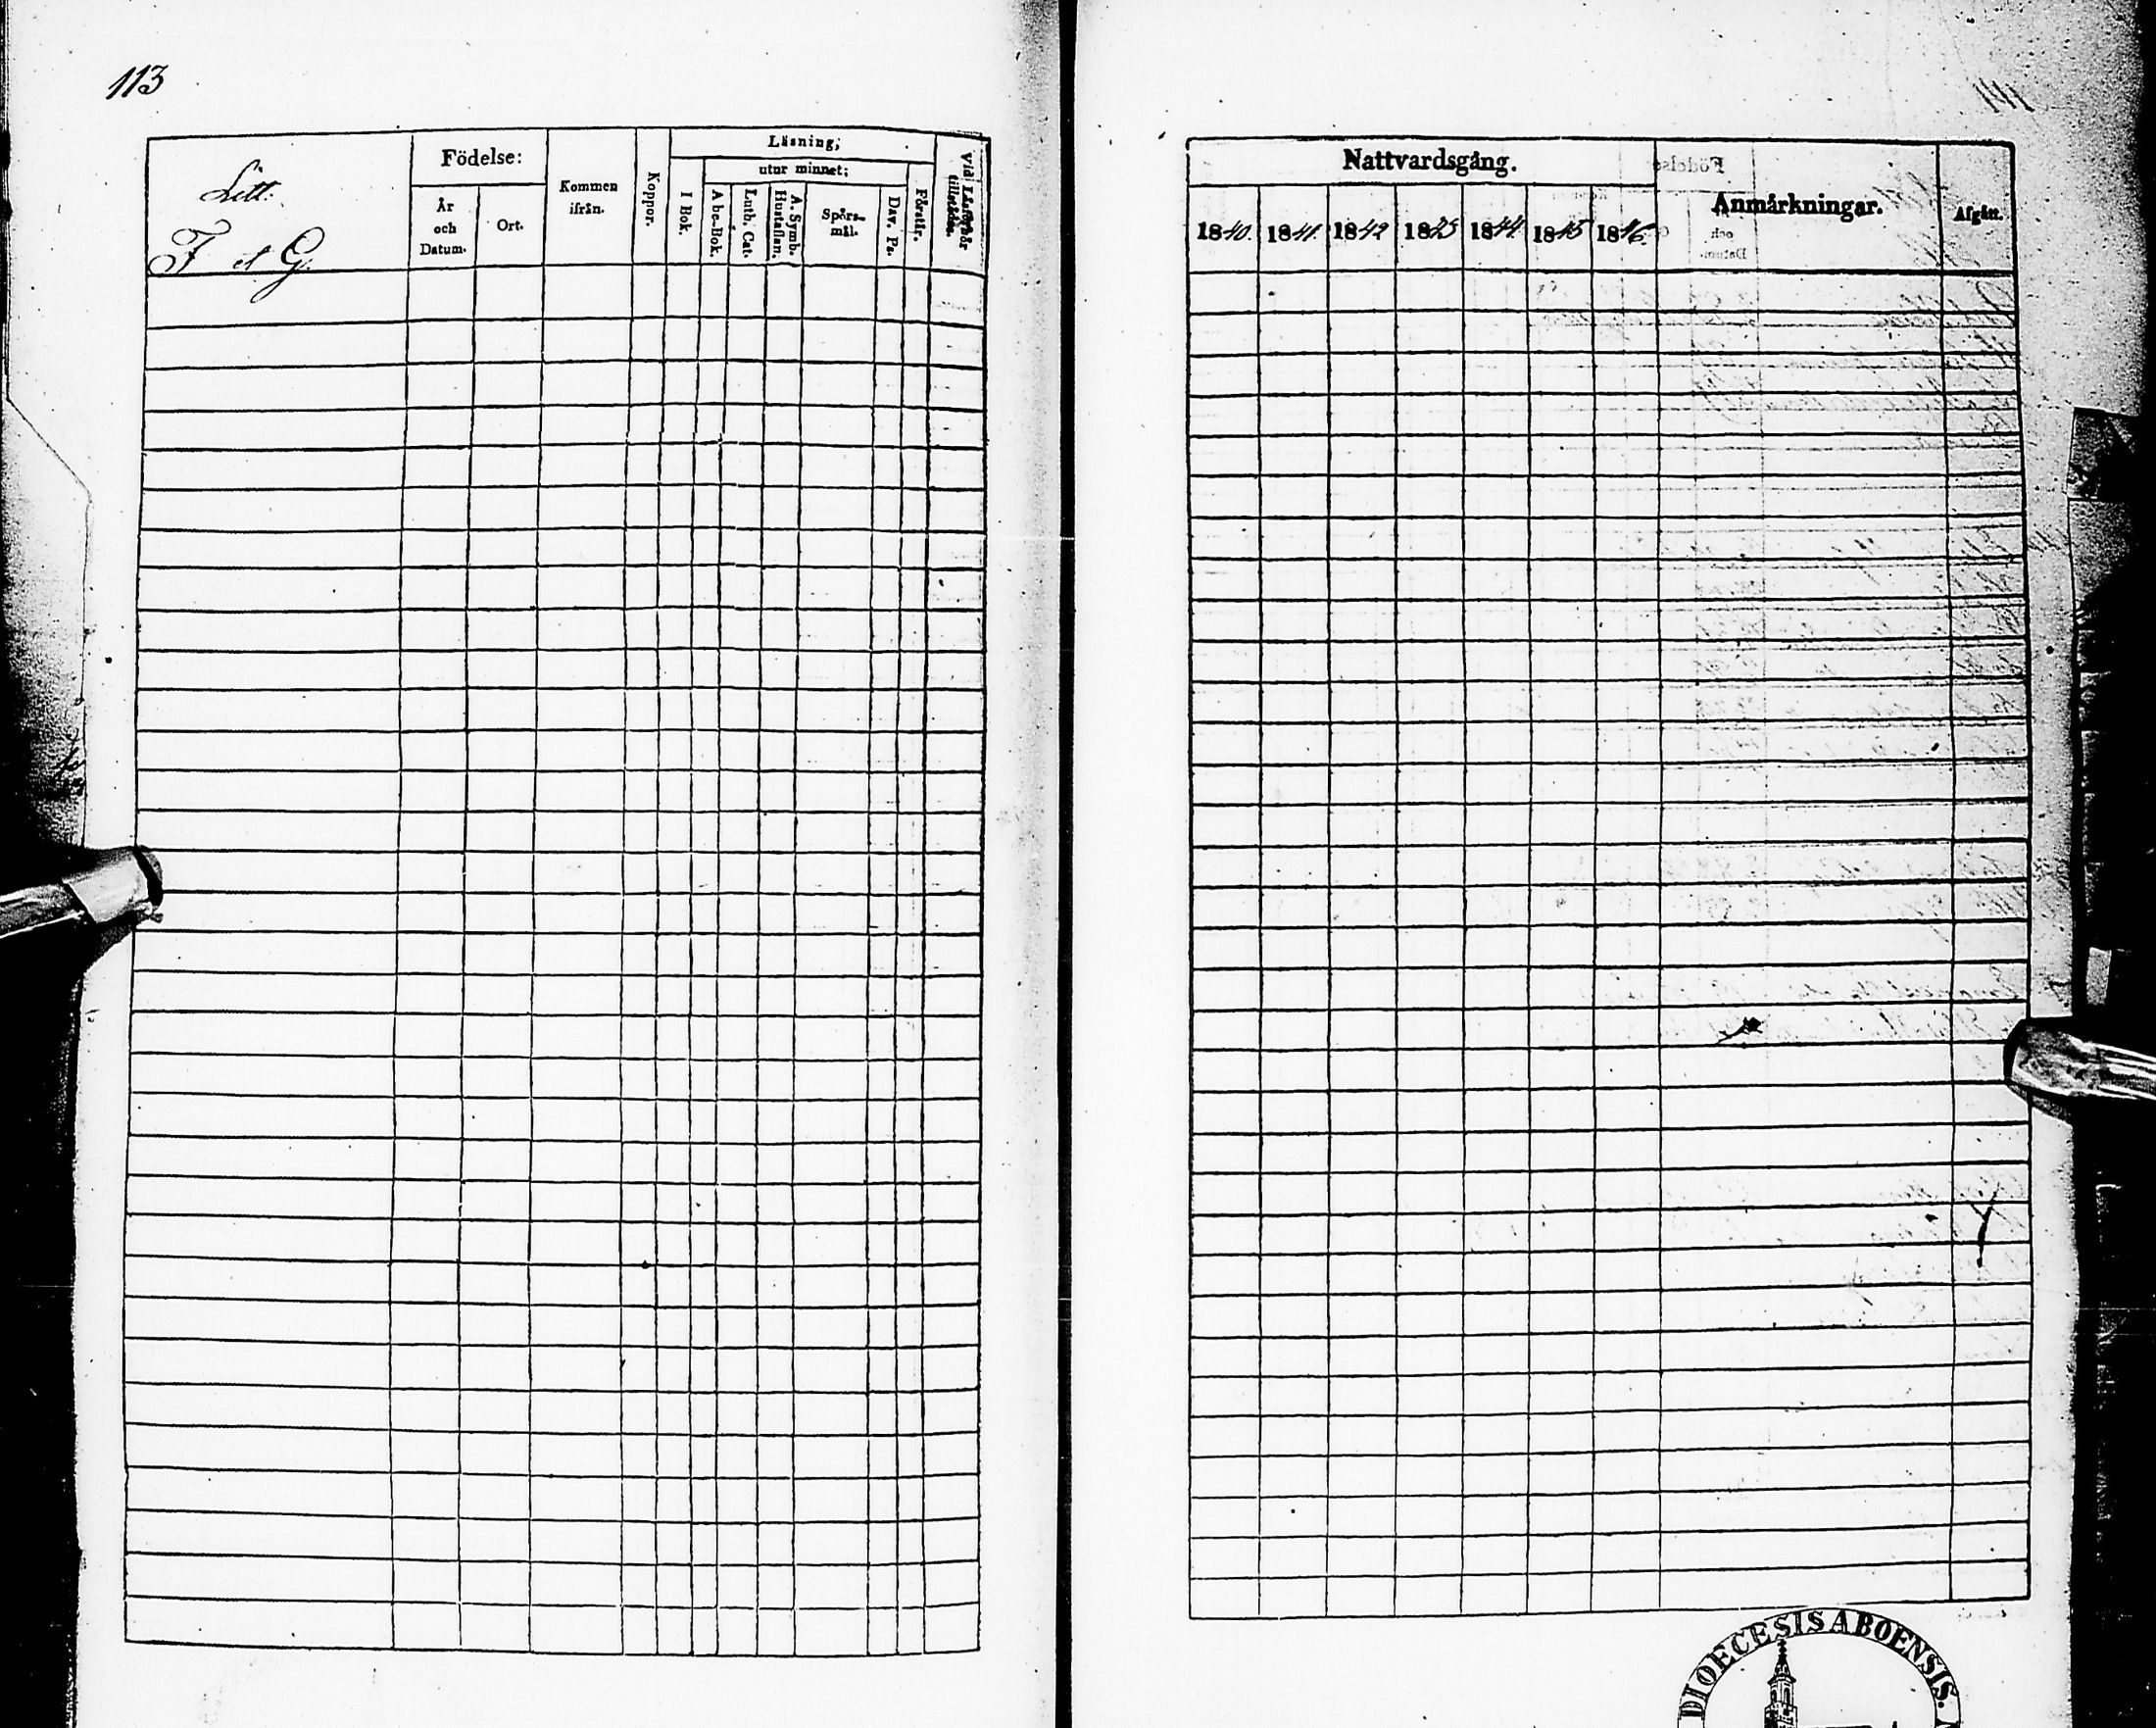 113
Litt.
F et G.
Födelse:
År
och
Datum.
Ort.
Kommen
ifrån.
Koppor.
Läsning;
utur minnet;
I Bok.
Abc-Bok.
Luth. Cat.
A. Symb.
Hustaflan.
Spörs-
mål.
Dav. Ps.
Förstår.
Vid Läsförhör
tillstädes.
Nattvardsgång.
1840. 1841. 1842 1843 1844 1845 1846.
Anmärkningar.
Afgått.
DIOECESIS ABOENSIS.